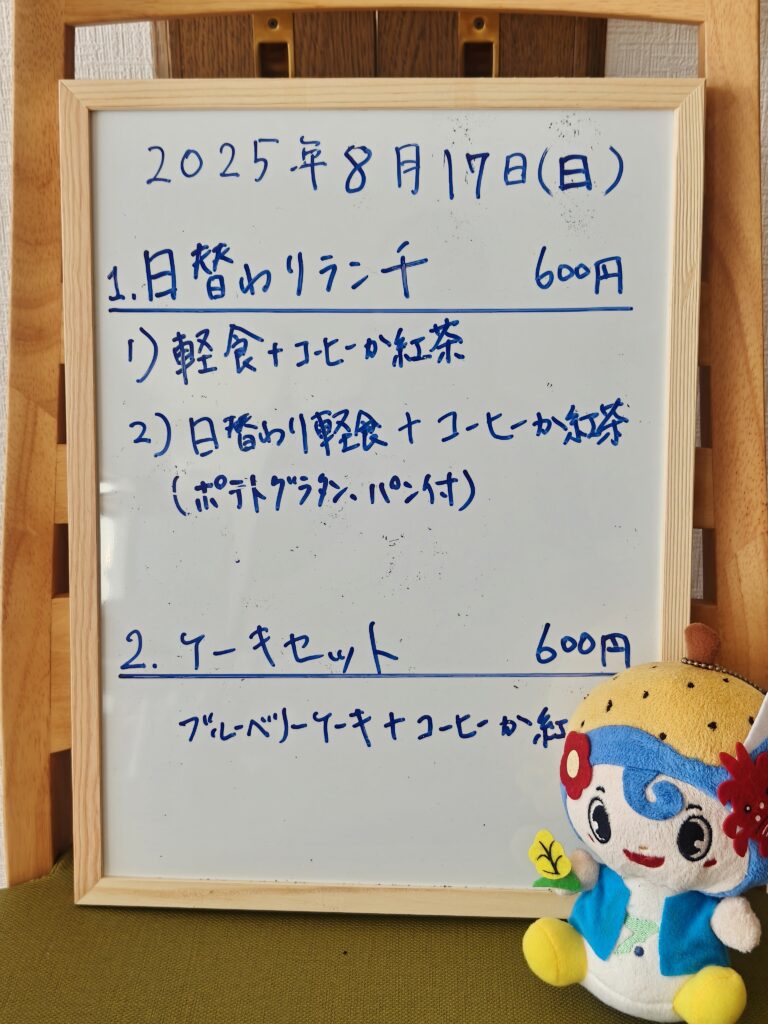 2025年8月17日(日)
1.日替わりランチ 600円
1)軽食+コーヒーか紅茶
2)日替わり軽食+コーヒーか紅茶
(ポテトグラタン、パン付)
2.ケーキセット 600円
ブルーベリーケーキ+コーヒーか紅